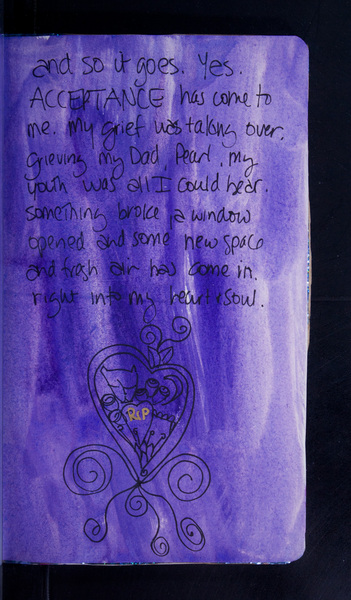 and so it goes. Yes.
ACCEPTANCE has come to
me. My grief was taking over.
Grieving my Dad, Pearl, my
youth was all I could hear.
Something broke, a window
opened and some new space
and fresh air has come in.
right into my heart & soul.
RIP